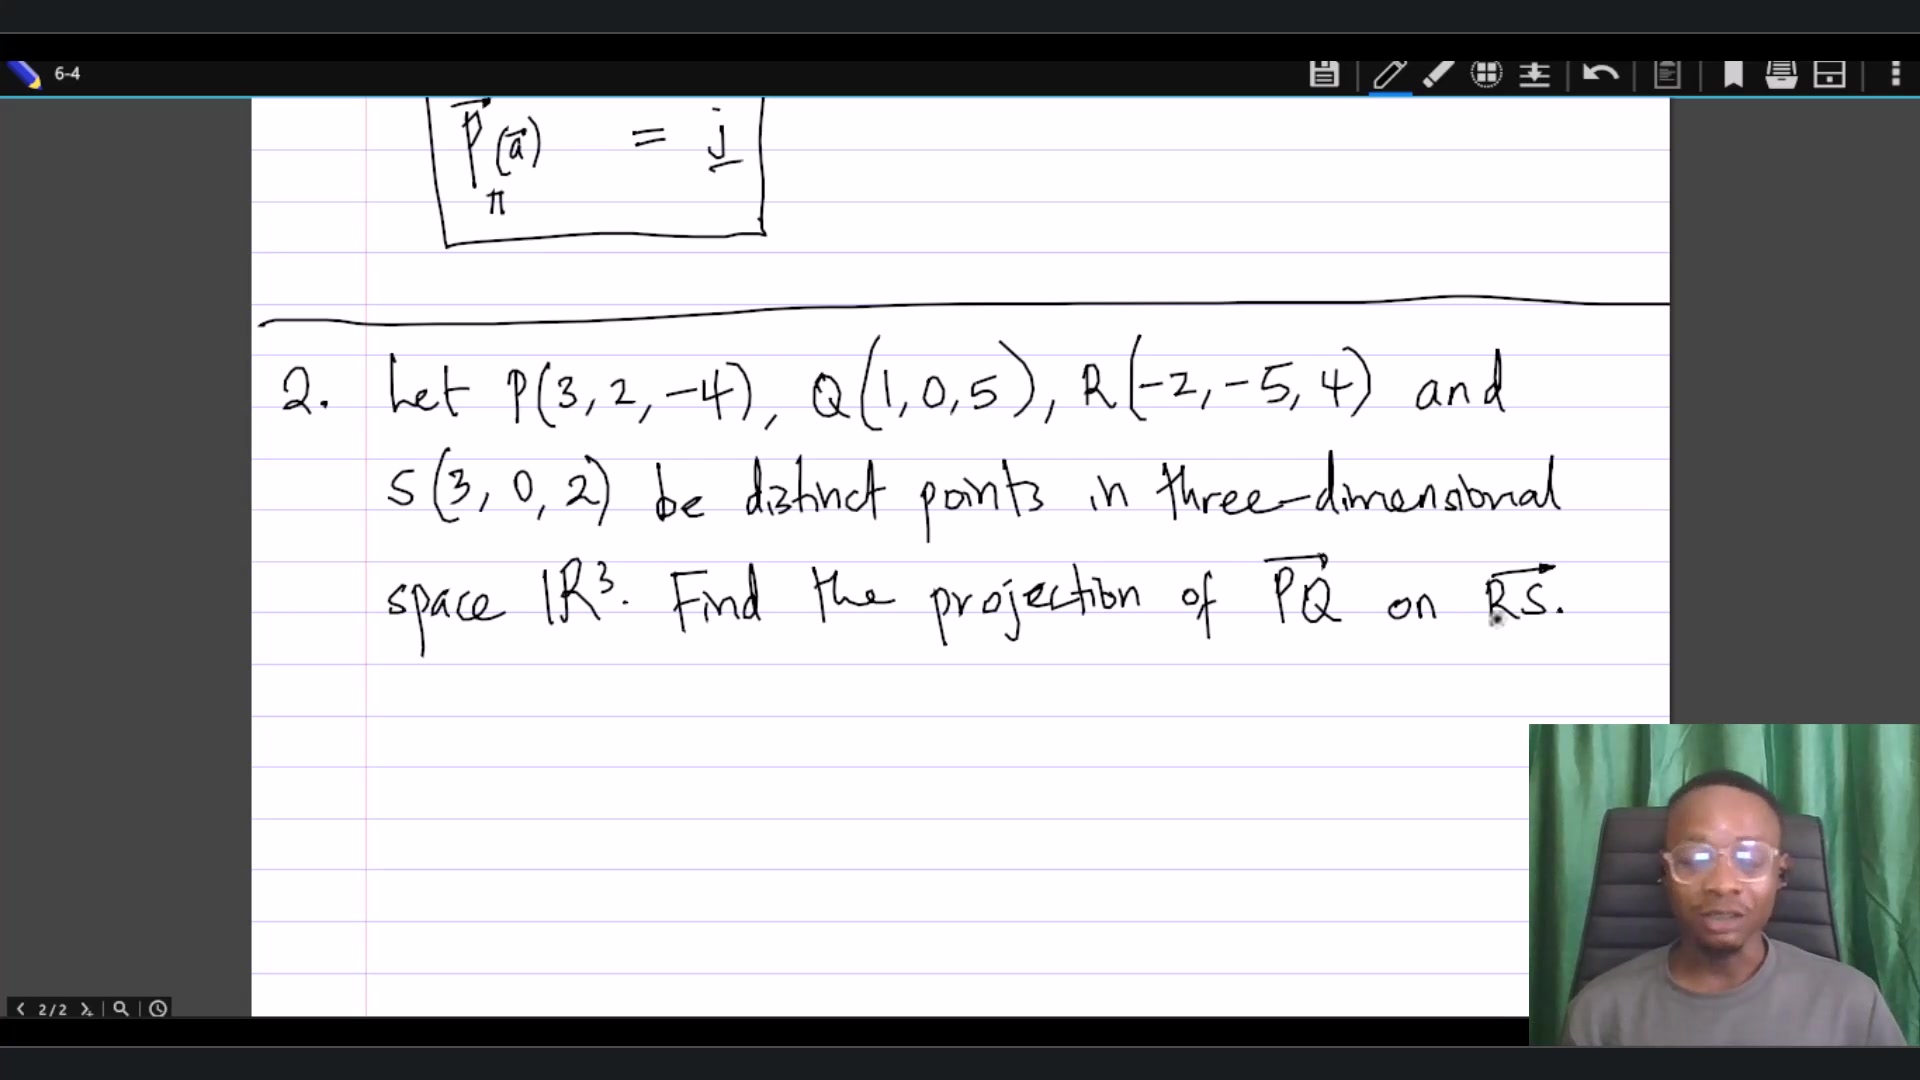 6-4
P⃗(a⃗) = j
π
2. Let P(3, 2, -4), Q(1, 0, 5), R(-2, -5, 4) and
S(3, 0, 2) be distinct points in three-dimensional
space ℝ³. Find the projection of P⃗Q⃗ on R⃗S⃗.
2/2